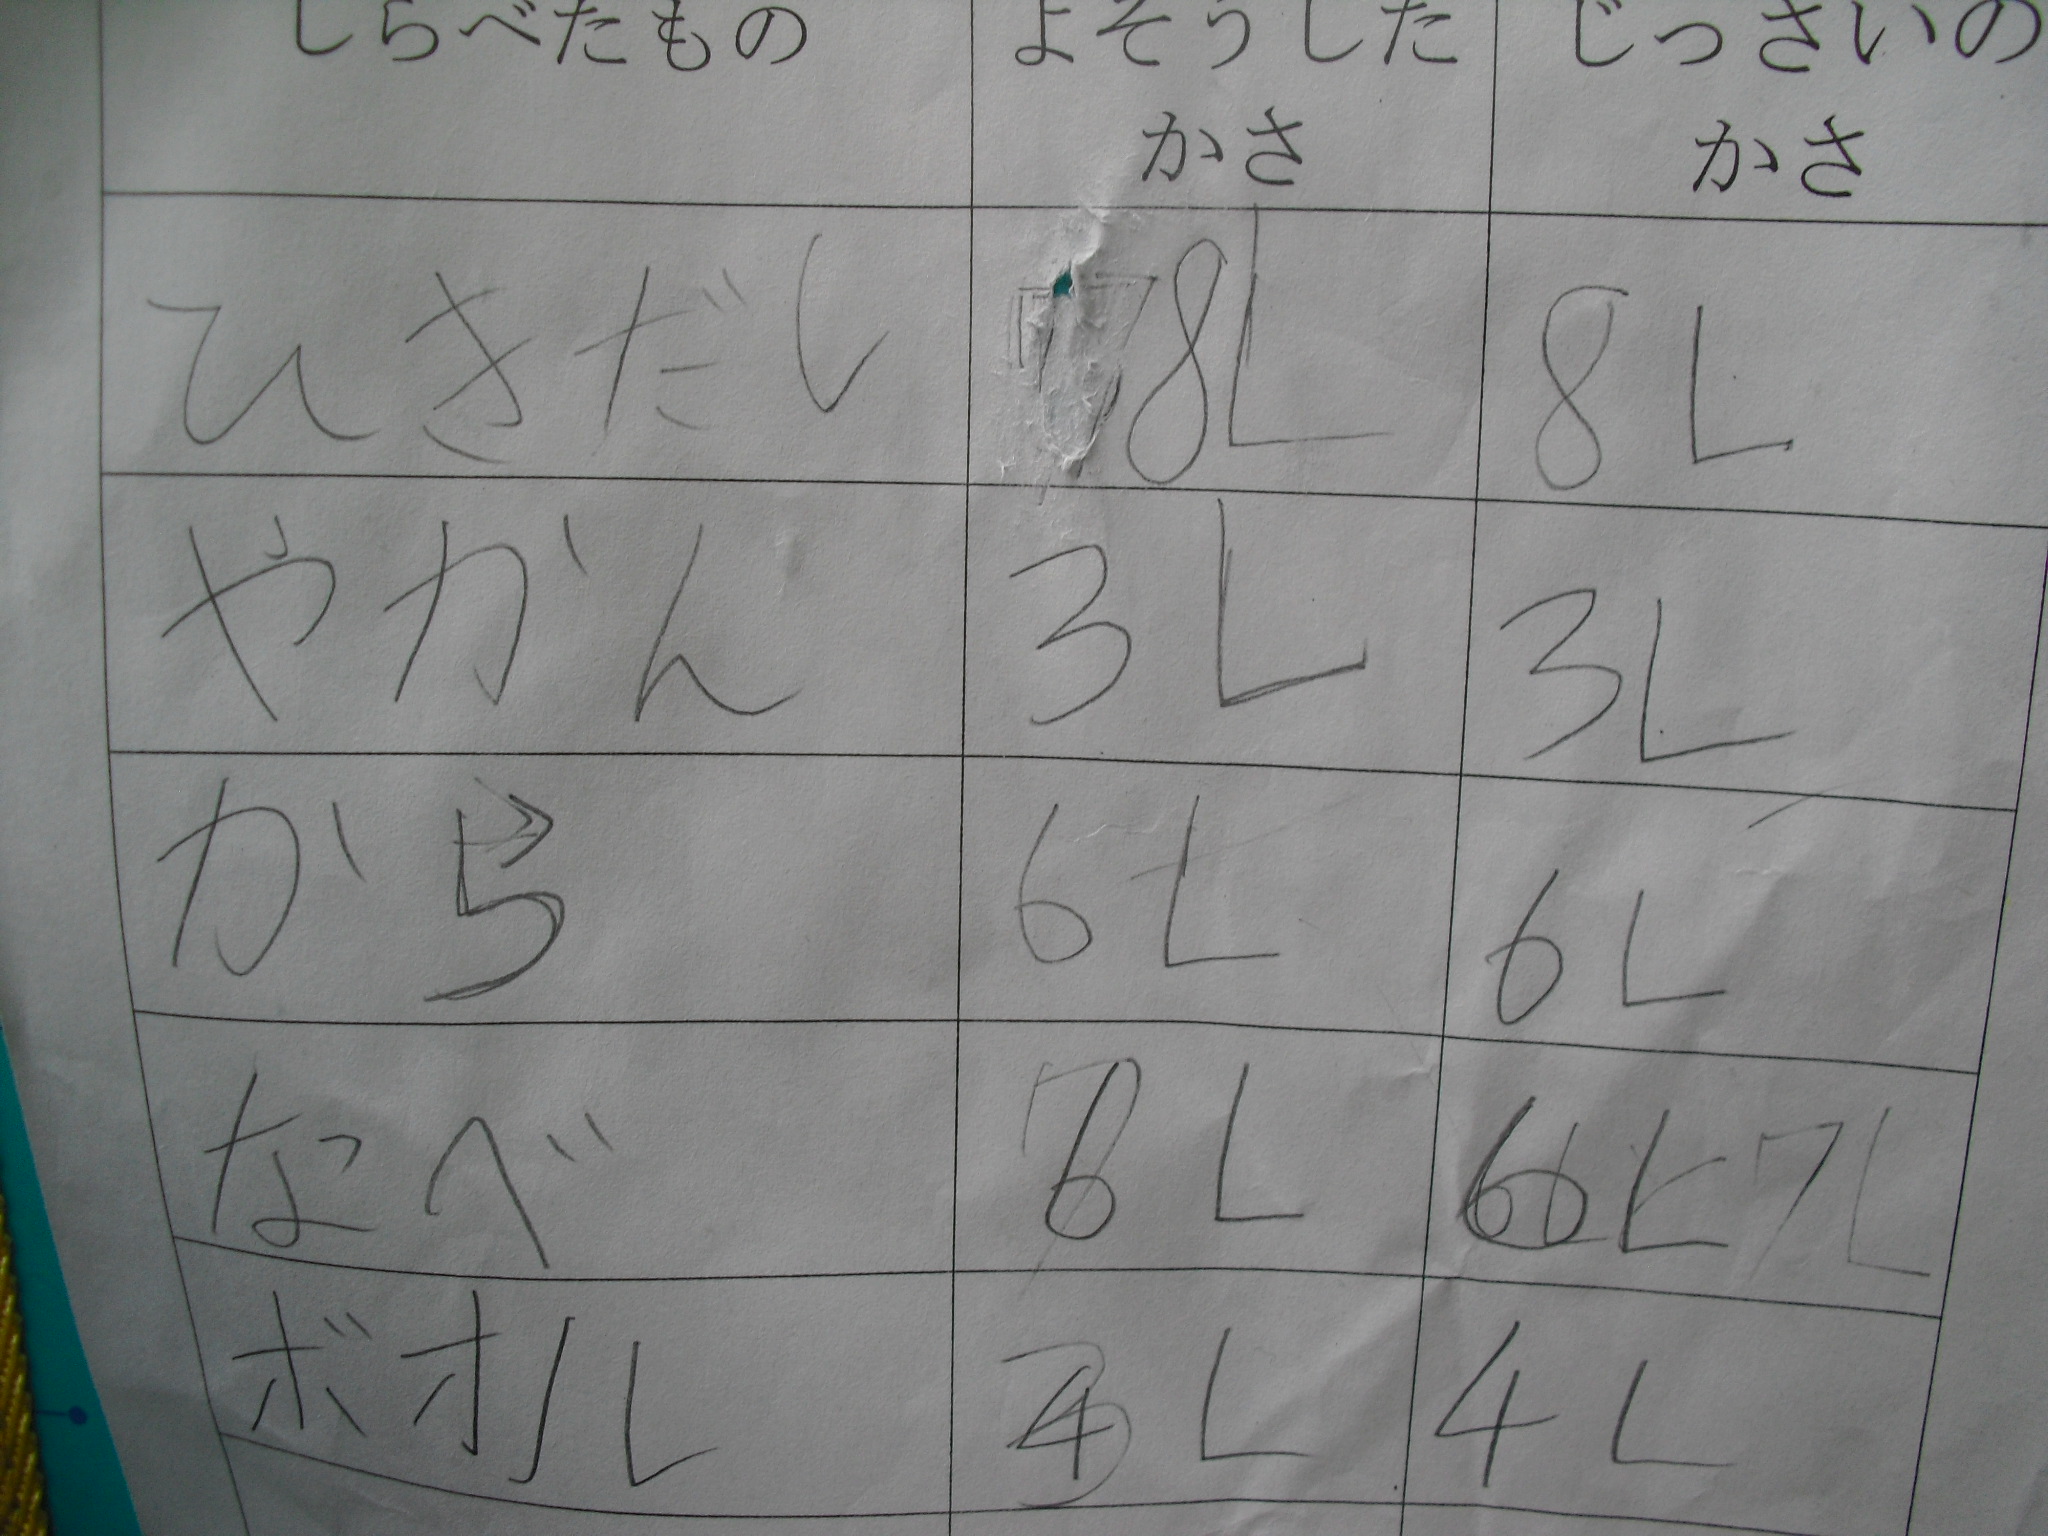 しらべたもの よそうした じっさいの
かさ かさ
ひきだし 8L 8L
やかん 3L 3L
から 6L 6L
なべ 6L 7L
ボオル 4L 4L